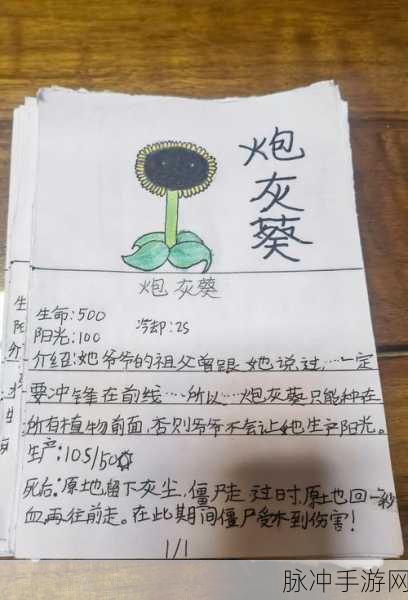 炮灰葵
炮灰葵
生命:500
阳光:100 冷却:2S
介绍:她爷爷的祖父曾跟她说过,…一定
要冲锋在前线…所以…炮灰葵只能种在
所有植物前面,否则爷爷不会让她生产阳光。
生产:10S/50
死后:原地留下灰尘,僵尸走过时,原地回一秒
血,再往前走。在此期间僵尸受不到伤害!
1/1
脉冲手游网